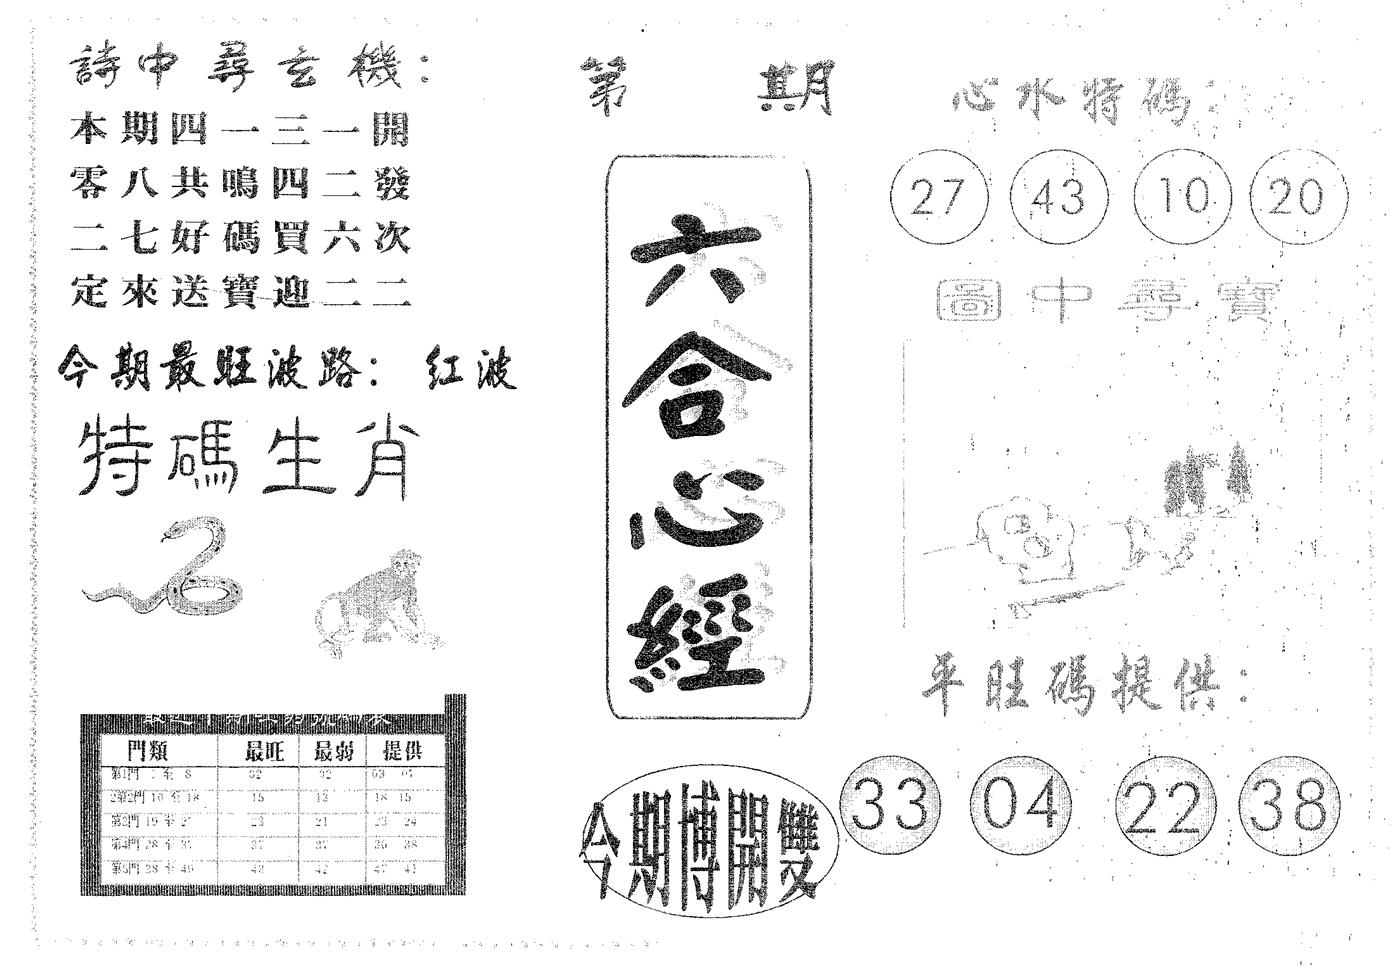 詩中尋玄機：
本期四一三一開
零八共鳴四二發
二七好碼買六次
定來送寶迎二二
今期最旺波路： 红波
特碼生肖
門類 最旺 最弱 提供
第1門 至 8 02 02 03
第2門 10 至 18 15 13 18 15
第3門 19 至 23 21 23 24
第4門 28 至 37 37 38
第5門 38 至 49 43 42 47 41
第 期
六合心經
今期博開雙
心水特碼：
27 43 10 20
圖中尋寶
平旺碼提供：
33 04 22 38